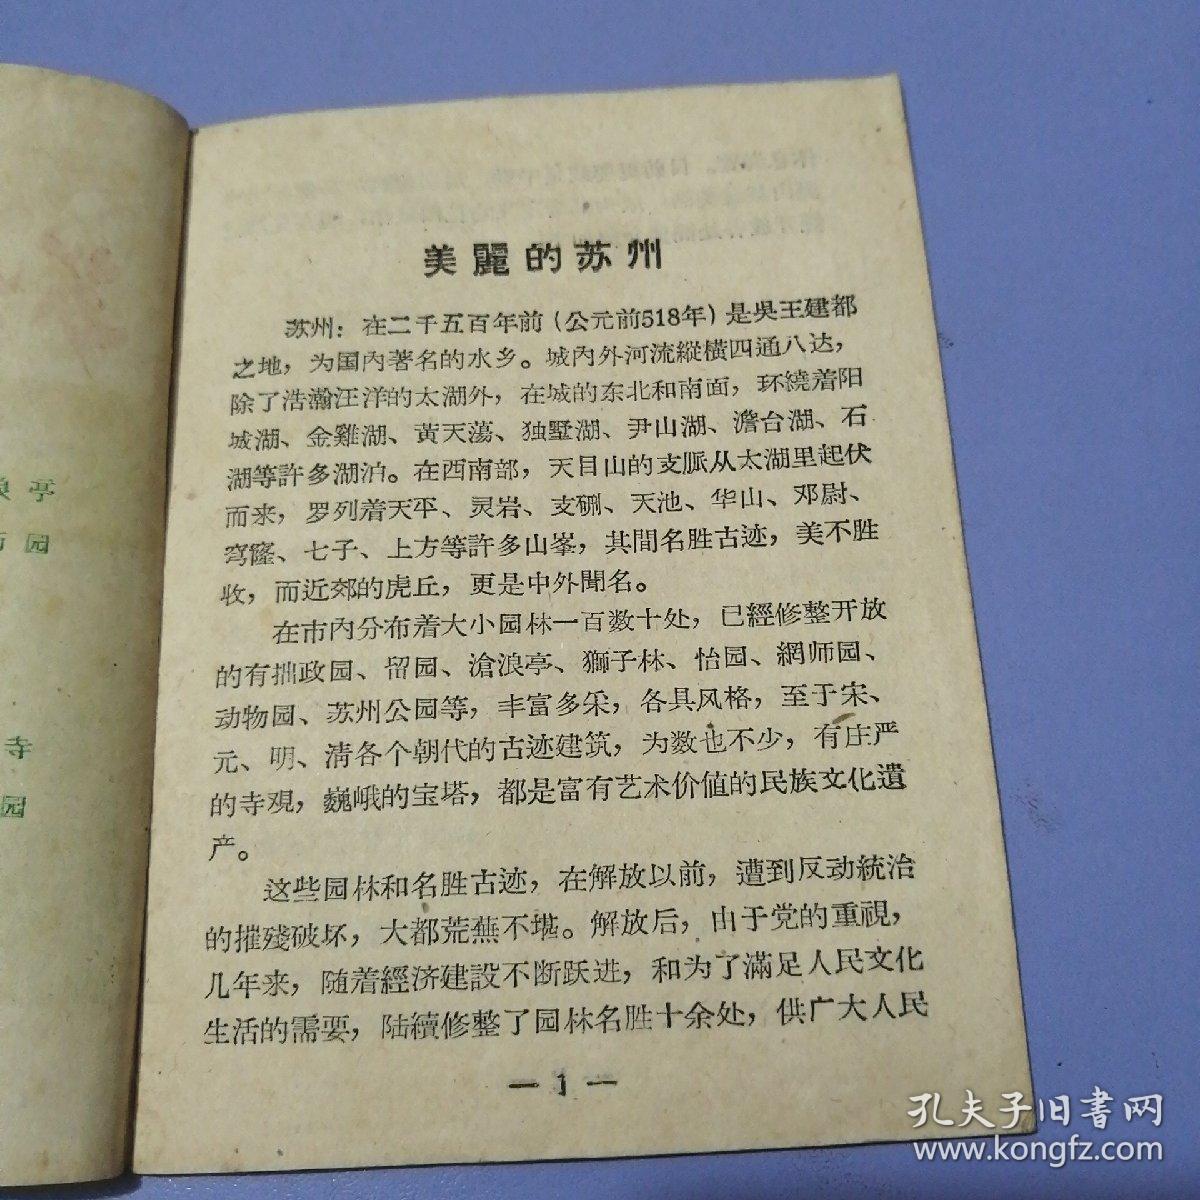 美麗的苏州
苏州：在二千五百年前（公元前518年）是吳王建都
之地，为国內著名的水乡。城內外河流縱橫四通八达，
除了浩瀚汪洋的太湖外，在城的东北和南面，环繞着阳
城湖、金雞湖、黃天蕩、独墅湖、尹山湖、澹台湖、石
湖等許多湖泊。在西南部，天目山的支脈从太湖里起伏
而来，罗列着天平、灵岩、支硎、天池、华山、邓尉、
穹窿、七子、上方等許多山峯，其間名胜古迹，美不胜
收，而近郊的虎丘，更是中外聞名。
在市內分布着大小园林一百数十处，已經修整开放
的有拙政园、留园、滄浪亭、獅子林、怡园、網师园、
动物园、苏州公园等，丰富多采，各具风格，至于宋、
元、明、清各个朝代的古迹建筑，为数也不少，有庄严
的寺观，巍峨的宝塔，都是富有艺术价值的民族文化遺
产。
这些园林和名胜古迹，在解放以前，遭到反动統治
的摧殘破坏，大都荒蕪不堪。解放后，由于党的重視，
几年来，随着經济建設不断跃进，和为了滿足人民文化
生活的需要，陆續修整了园林名胜十余处，供广大人民
— 1 —
亭
园
寺
园
孔夫子旧书网
www.kongfz.com